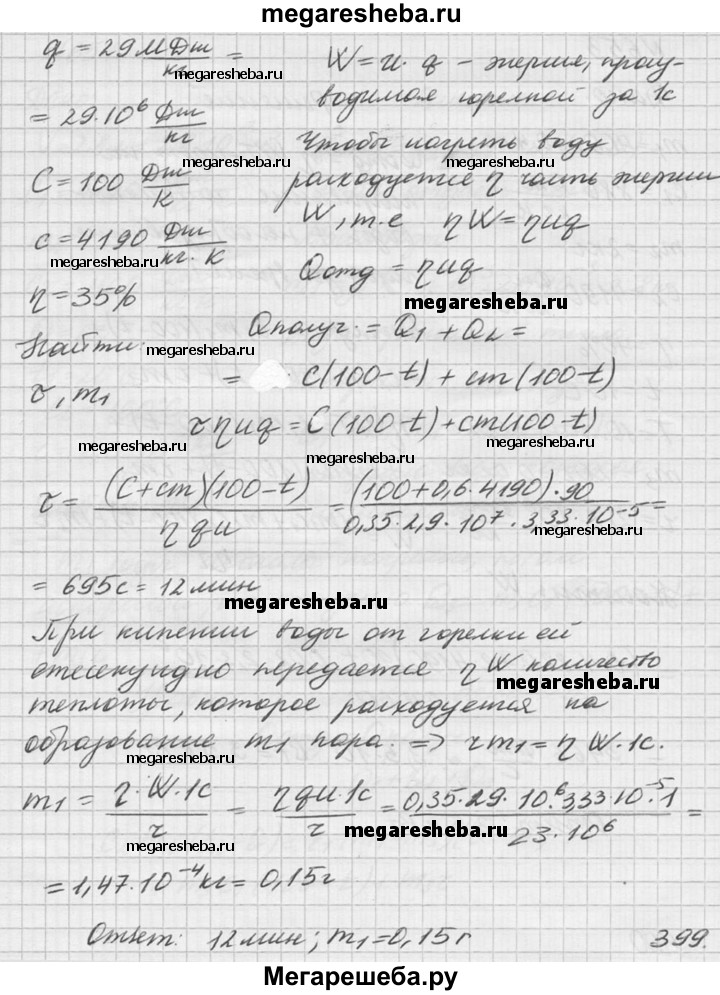 megaresheba.ru
q = 29 МДж/кг =
= 29·10⁶ Дж/кг
C = 100 Дж/К
c = 4190 Дж/кг·К
η = 35%
Найти:
τ, m₁
W = u·q – энергия, произ-
водимая горелкой за 1с
Чтобы нагреть воду
расходуется η часть энергии
W, т.е ηW = ηuq
Qотд = ηuq
Qполуч. = Q₁ + Q₂ =
= C(100-t) + cm(100-t)
τηuq = C(100-t)+cm(100-t)
τ = (C+cm)(100-t)/ηqu = (100+0,6·4190)·90/0,35·2,9·10⁷·3,33·10⁻⁵ =
= 695с = 12 мин
При кипении воды от горелки ей
ежесекундно передается ηW количество
теплоты, которое расходуется на
образование m₁ пара. => rm₁ = ηW·1с.
m₁ = η·W·1с/r = ηqu·1с/r = 0,35·29·10⁶·3,33·10⁻⁵·1/23·10⁶ =
= 1,47·10⁻⁴кг = 0,15г
Ответ: 12 мин; m₁=0,15г
399.
megaresheba.ru
megaresheba.ru
megaresheba.ru
megaresheba.ru
megaresheba.ru
megaresheba.ru
megaresheba.ru
megaresheba.ru
megaresheba.ru
megaresheba.ru
megaresheba.ru
megaresheba.ru
megaresheba.ru
megaresheba.ru
Мегарешеба.ру